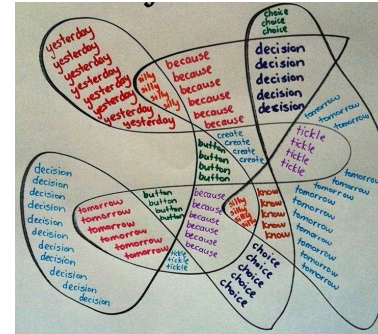 choice
choice
choice
yesterday
yesterday
yesterday
yesterday
yesterday
yesterday
yesterday
yesterday
silly
silly
silly
silly
because
because
because
because
because
because
decision
decision
decision
decision
decision
tomorrow
tomorrow
tomorrow
create
create
create
create
tickle
tickle
tickle
tickle
button
button
button
button
decision
decision
decision
decision
decision
decision
decision
decision
decision
decision
decision
tomorrow
tomorrow
tomorrow
tomorrow
tomorrow
button
button
button
button
because
because
because
because
because
because
silly
silly
silly
silly
know
know
know
know
know
tomorrow
tomorrow
tomorrow
tomorrow
tomorrow
tomorrow
tomorrow
tomorrow
tomorrow
tomorrow
tickle
tickle
tickle
choice
choice
choice
choice
choice
choice